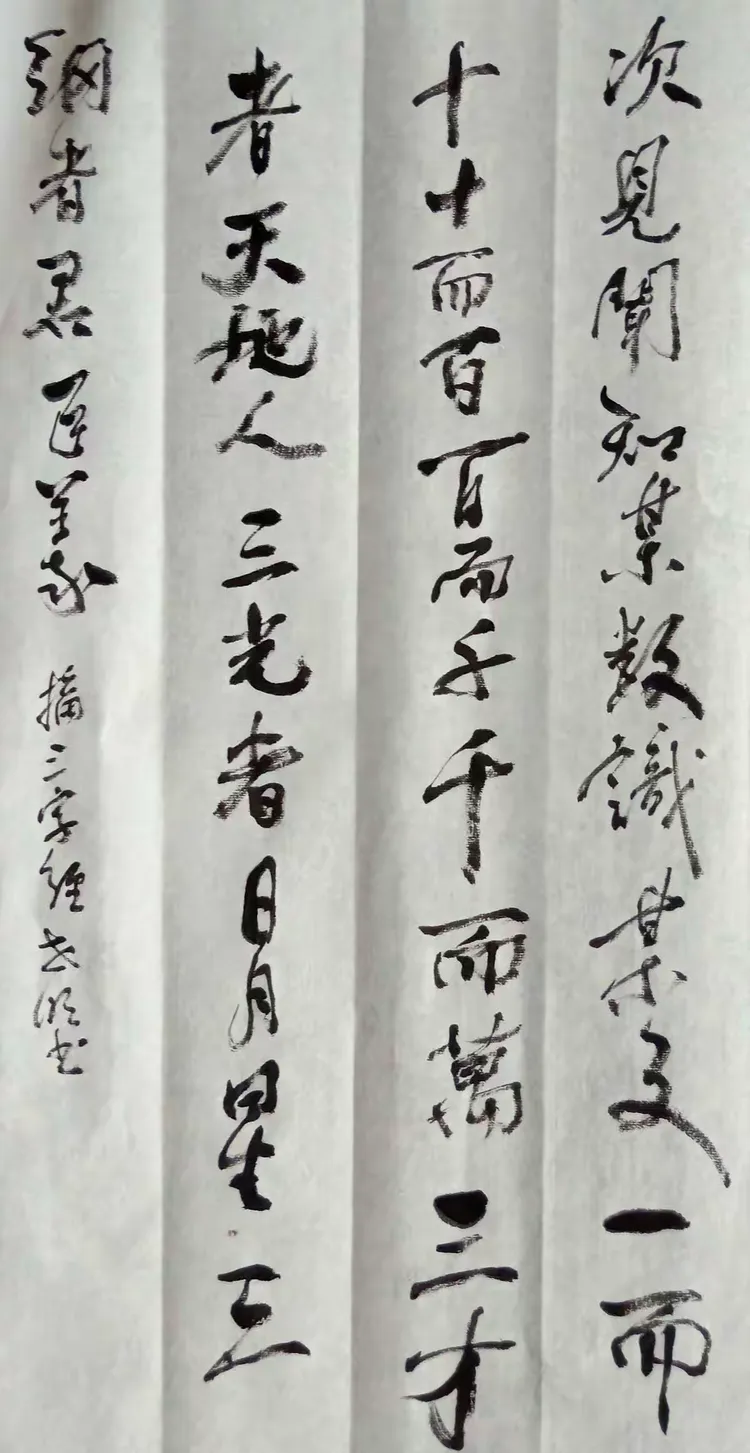 次見聞知某數識某文一而
十十而百百而千千而萬三才
者天地人三光者日月星三
綱者君臣義摘三字經書